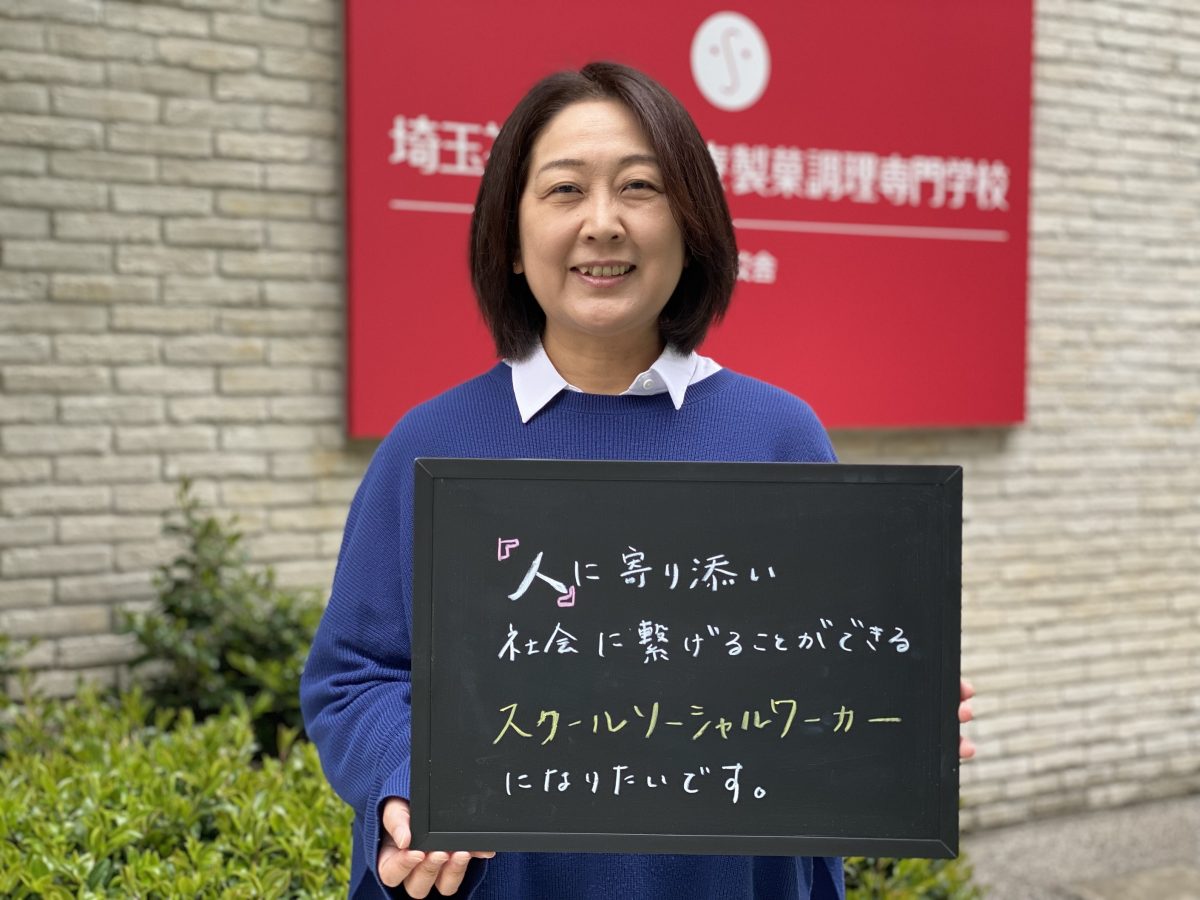 埼玉 製菓調理専門学校
校舎
『人』に寄り添い
社会に繋げることができる
スクールソーシャルワーカー
になりたいです。